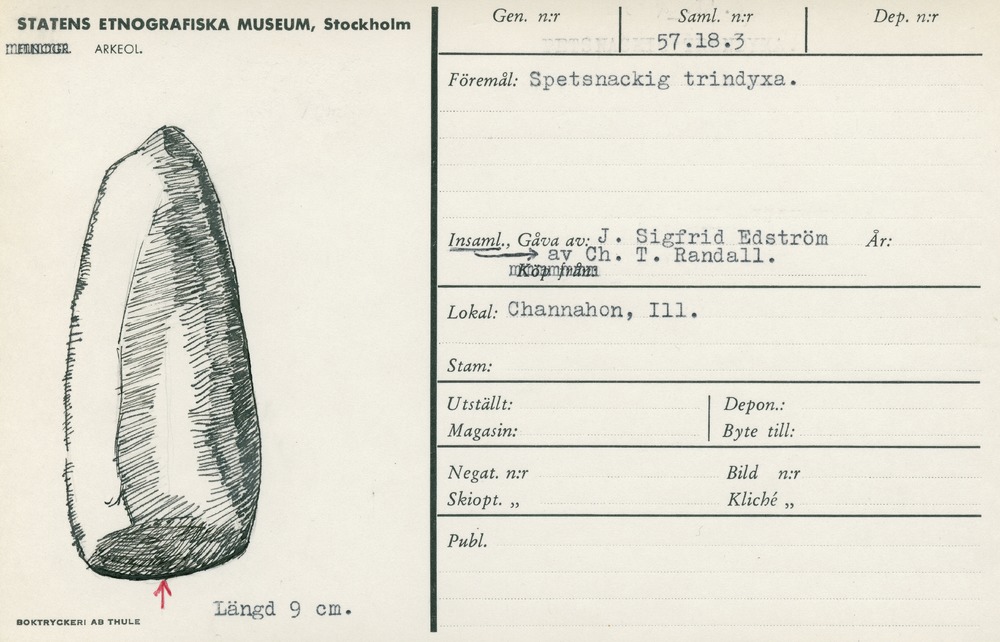 STATENS ETNOGRAFISKA MUSEUM, Stockholm
ETNOGR. ARKEOL.
Längd 9 cm.
BOKTRYCKERI AB THULE
Gen. n:r Saml. n:r Dep. n:r
57.18.3
Föremål: Spetsnackig trindyxa.
Insaml., Gåva av: J. Sigfrid Edström År:
av Ch. T. Randall.
Köp från:
Lokal: Channahon, Ill.
Stam:
Utställt: Depon.:
Magasin: Byte till:
Negat. n:r Bild n:r
Skiopt. „ Kliché „
Publ.